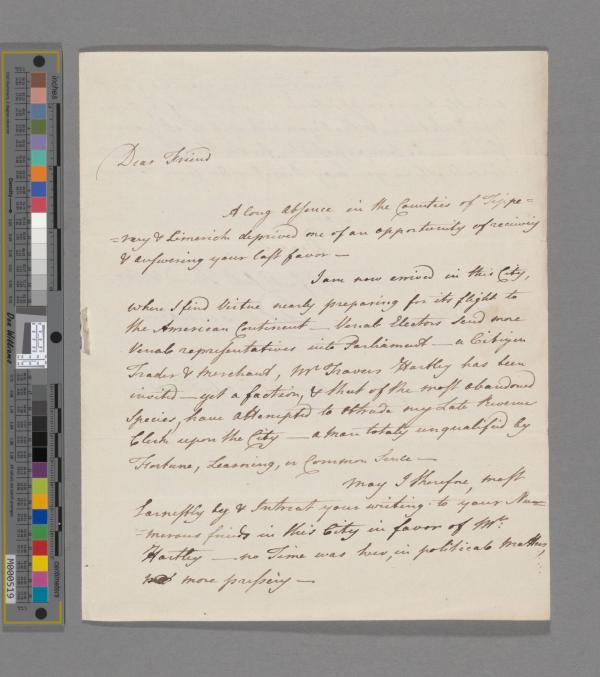 Dear Friend
A long absence in the Counties of Tippe=
=rary & Limerick deprived me of an opportunity of receiving
& answering your last favor —
I am now arrived in this City,
where I find Virtue nearly preparing for its flight to
the American Continent — Venal Electors send more
Venal representatives into Parliament — a Citizen
Trader & Merchant, Mr Travers Hartley has been
invited — yet a faction, & that of the most abandoned
Species, have attempted to obtrude my Late Revenue
Clerk upon the City — a man totally unqualified by
Fortune, Learning, or Common Sense —
May I therefore, most
Earnestly beg & Intreat your writing to your Nu=
=merous friends in this City in favor of Mr.
Hartley — no Time was ever, in political matters,
more pressing —
inches
centimeters
Density
Don Williams
M000519